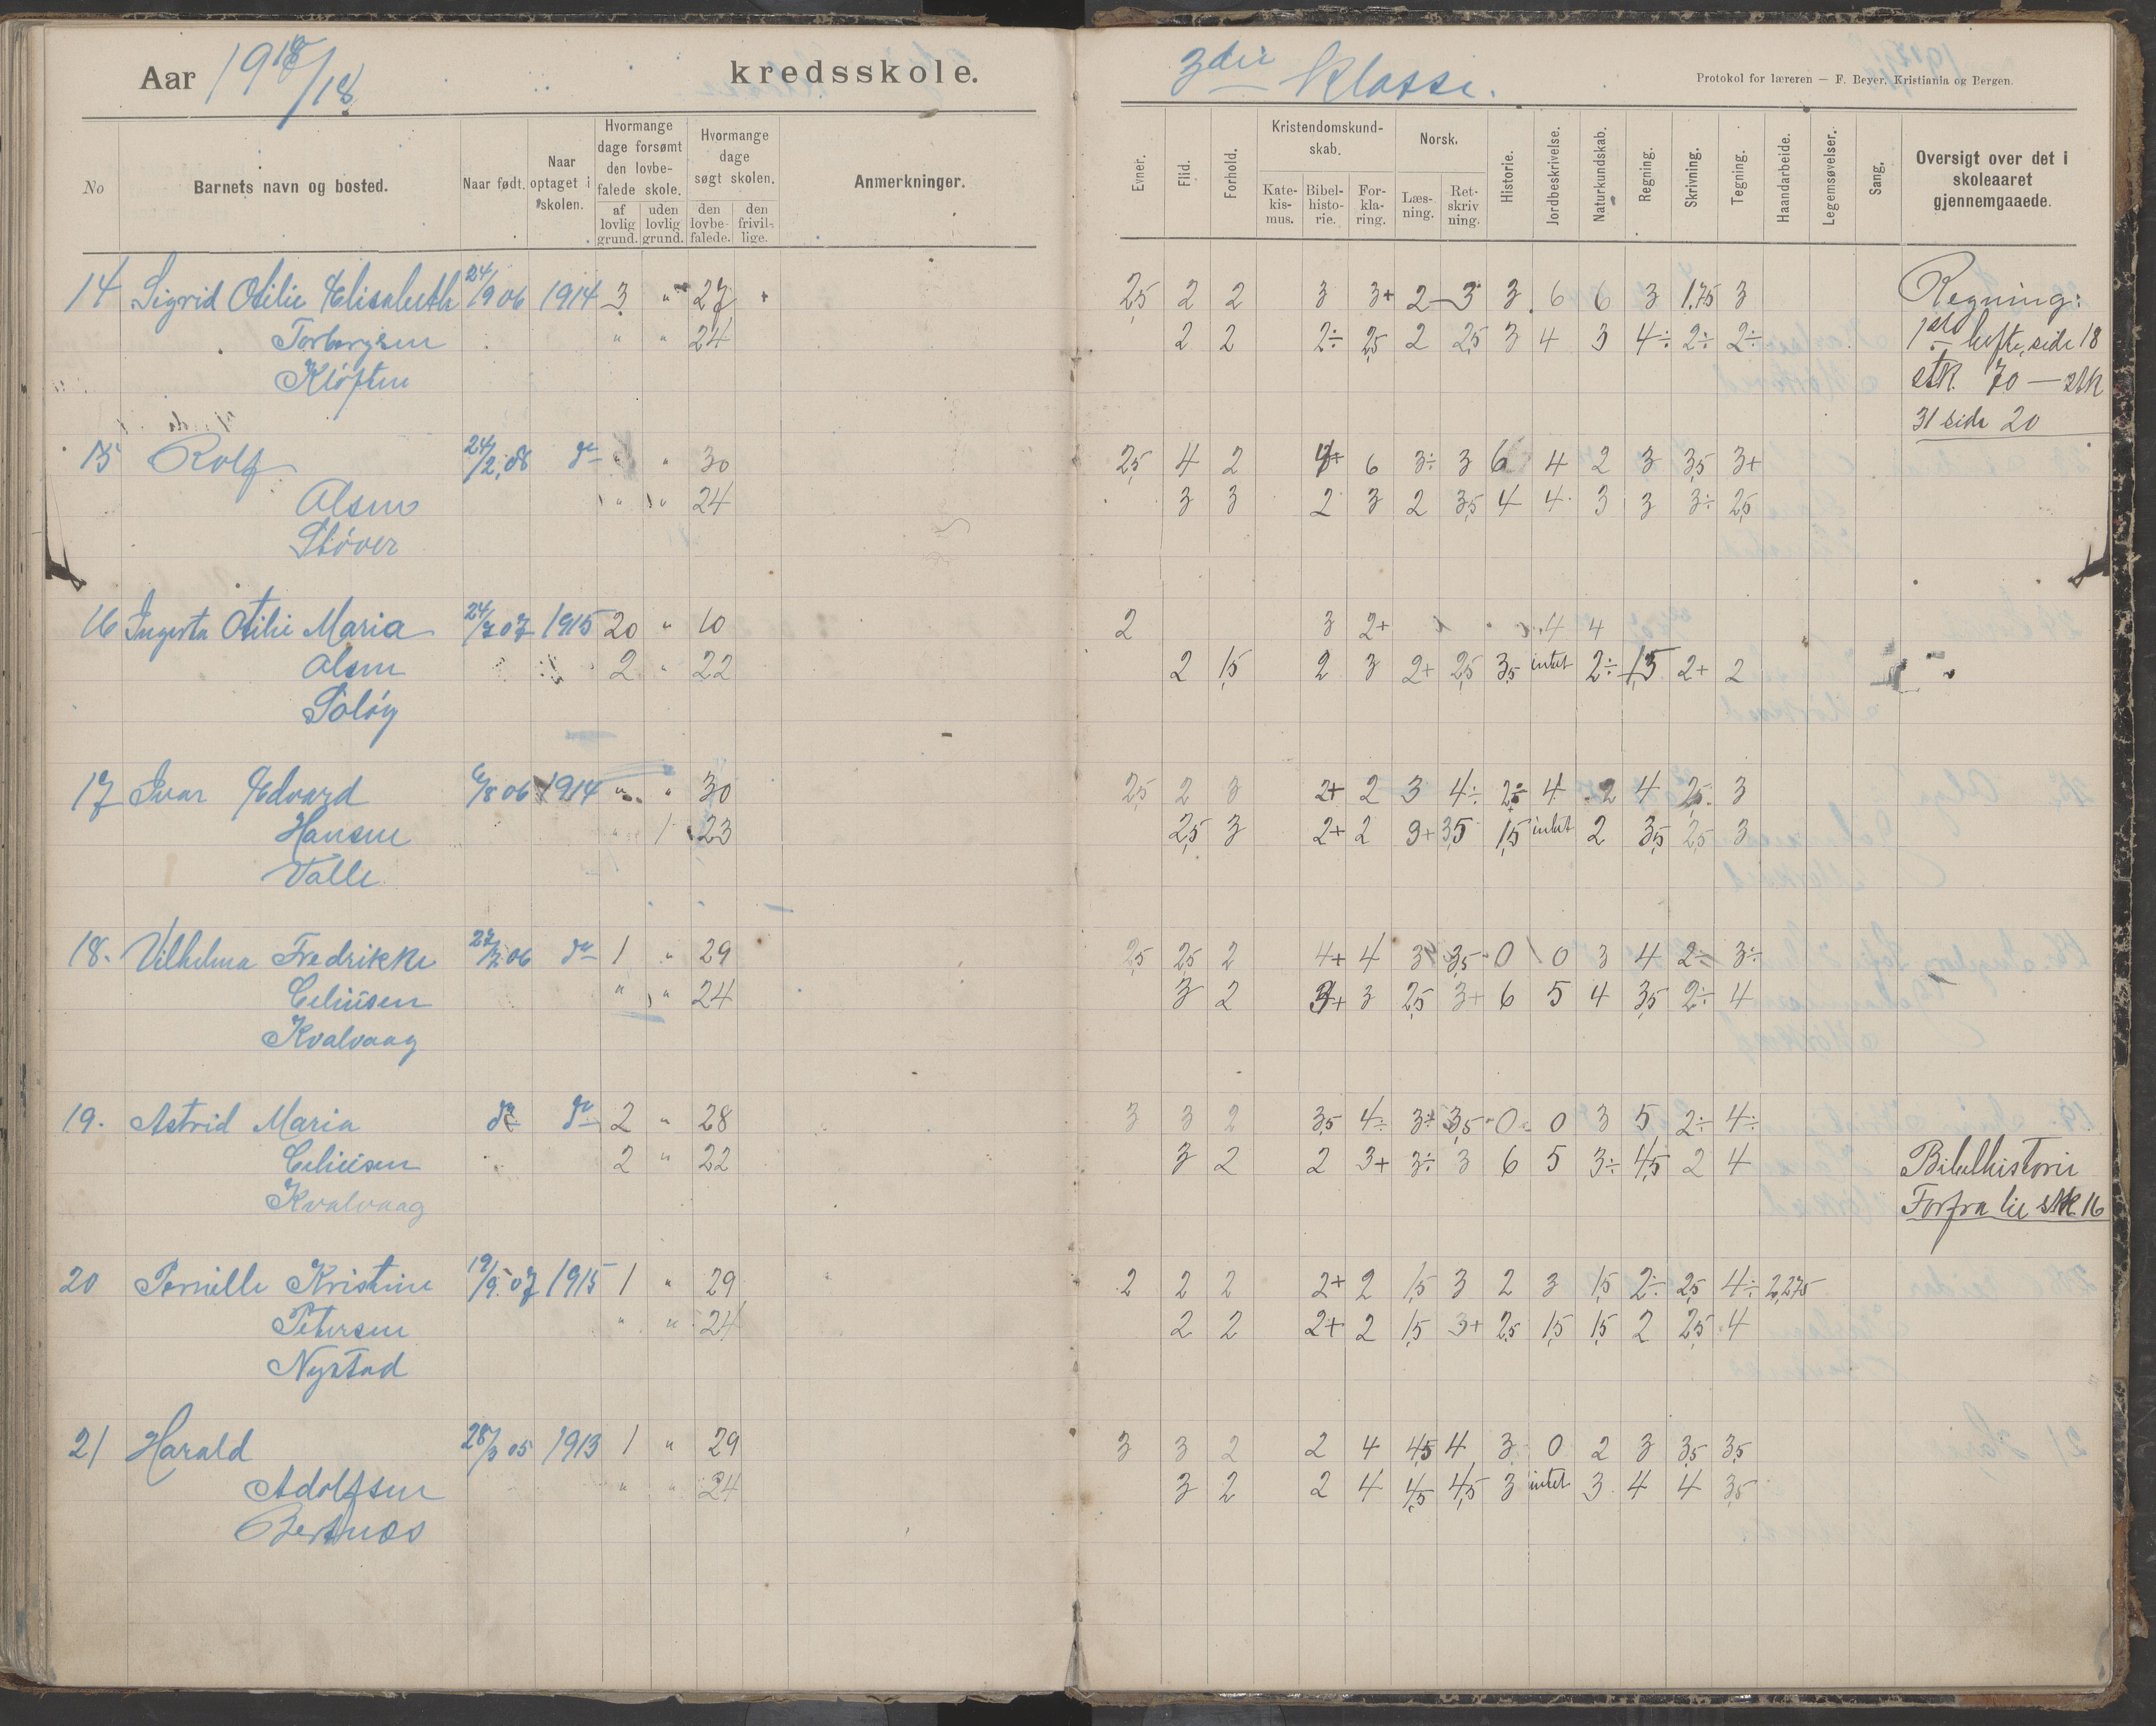 Aar 1918/18 kredsskole. 3die Klasse.
Protokol for læreren — F. Beyer, Kristiania og Bergen.
No
Barnets navn og bosted.
Naar født.
Naar optaget i skolen.
Hvormange dage forsømt den lovbefalede skole.
af lovlig grund.
uden lovlig grund.
Hvormange dage søgt skolen.
den lovbefalede.
den frivillige.
Anmerkninger.
Evner.
Flid.
Forhold.
Kristendomskundskab.
Katekismus.
Bibelhistorie.
Forklaring.
Norsk.
Læsning.
Retskrivning.
Historie.
Jordbeskrivelse.
Naturkundskab.
Regning.
Skrivning.
Tegning.
Haandarbeide.
Legemsøvelser.
Sang.
Oversigt over det i skoleaaret gjennemgaaede.
14 Sigrid Otilie Elisabeth 24/9 06 1914 3 " 27 2,5 2 2 3 3+ 2 3 3 6 6 3 1,75 3 Regning:
Torbergsen " " 24 2 2 2÷ 2,5 2 2,5 3 4 3 4÷ 2÷ 2÷ 1ste hefte, side 18
Kløften stk. 70 — stk
31 side 20
15 Rolf 24/2 08 do " " 30 2,5 4 2 6 3÷ 3 6 4 2 3 3,5 3+
Olsen " " 24 3 3 2 3 2 3,5 4 4 3 3 3÷ 2,5
Støver
16 Ingerta Otilie Maria 24/7 07 1915 20 " 10 2 3 2+ 4 4
Olsen 2 " 22 2 1,5 2 3 2+ 2,5 3,5 intet 2÷ 1,5 2+ 2
Soløy
17 Ivar Edvard 6/8 06 1914 " " 30 2,5 2 3 2+ 2 3 4÷ 2,5 4 2 4 2,5 3
Hansen " 1 23 2,5 3 2+ 2 3+ 3,5 1,5 intet 2 3,5 2,5 3
Valle
18. Vilhelma Fredrikke 27/7 06 do 1 " 29 2,5 2,5 2 4+ 4 3 3,5 0 0 3 4 2÷ 3÷
Celiusen " " 24 3 2 3+ 3 2,5 3+ 6 5 4 3,5 2÷ 4
Kvalvaag
19. Astrid Maria do do 2 " 28 3 3 2 3,5 4÷ 3÷ 3,5 0 0 3 5 2÷ 4÷
Celiusen 2 " 22 3 2 2 3+ 3÷ 3 6 5 3÷ 4,5 2 4 Bibelhistorie
Kvalvaag Forfra til stk. 16
20 Pernille Kristine 19/9 07 1915 1 " 29 2 2 2 2+ 2 1,5 3 2 3 1,5 2÷ 2,5 4÷ 2,275
Petersen " " 24 2 2 2+ 2 1,5 3+ 2,5 1,5 1,5 2 2,5 4
Nystad
21 Harald 28/3 05 1913 1 " 29 3 3 2 2 4 4,5 4 3 0 2 3 3,5 3,5
Adolfsen " " 24 3 2 2 4 4,5 4,5 3 intet 3 4 4 3,5
Bertnes